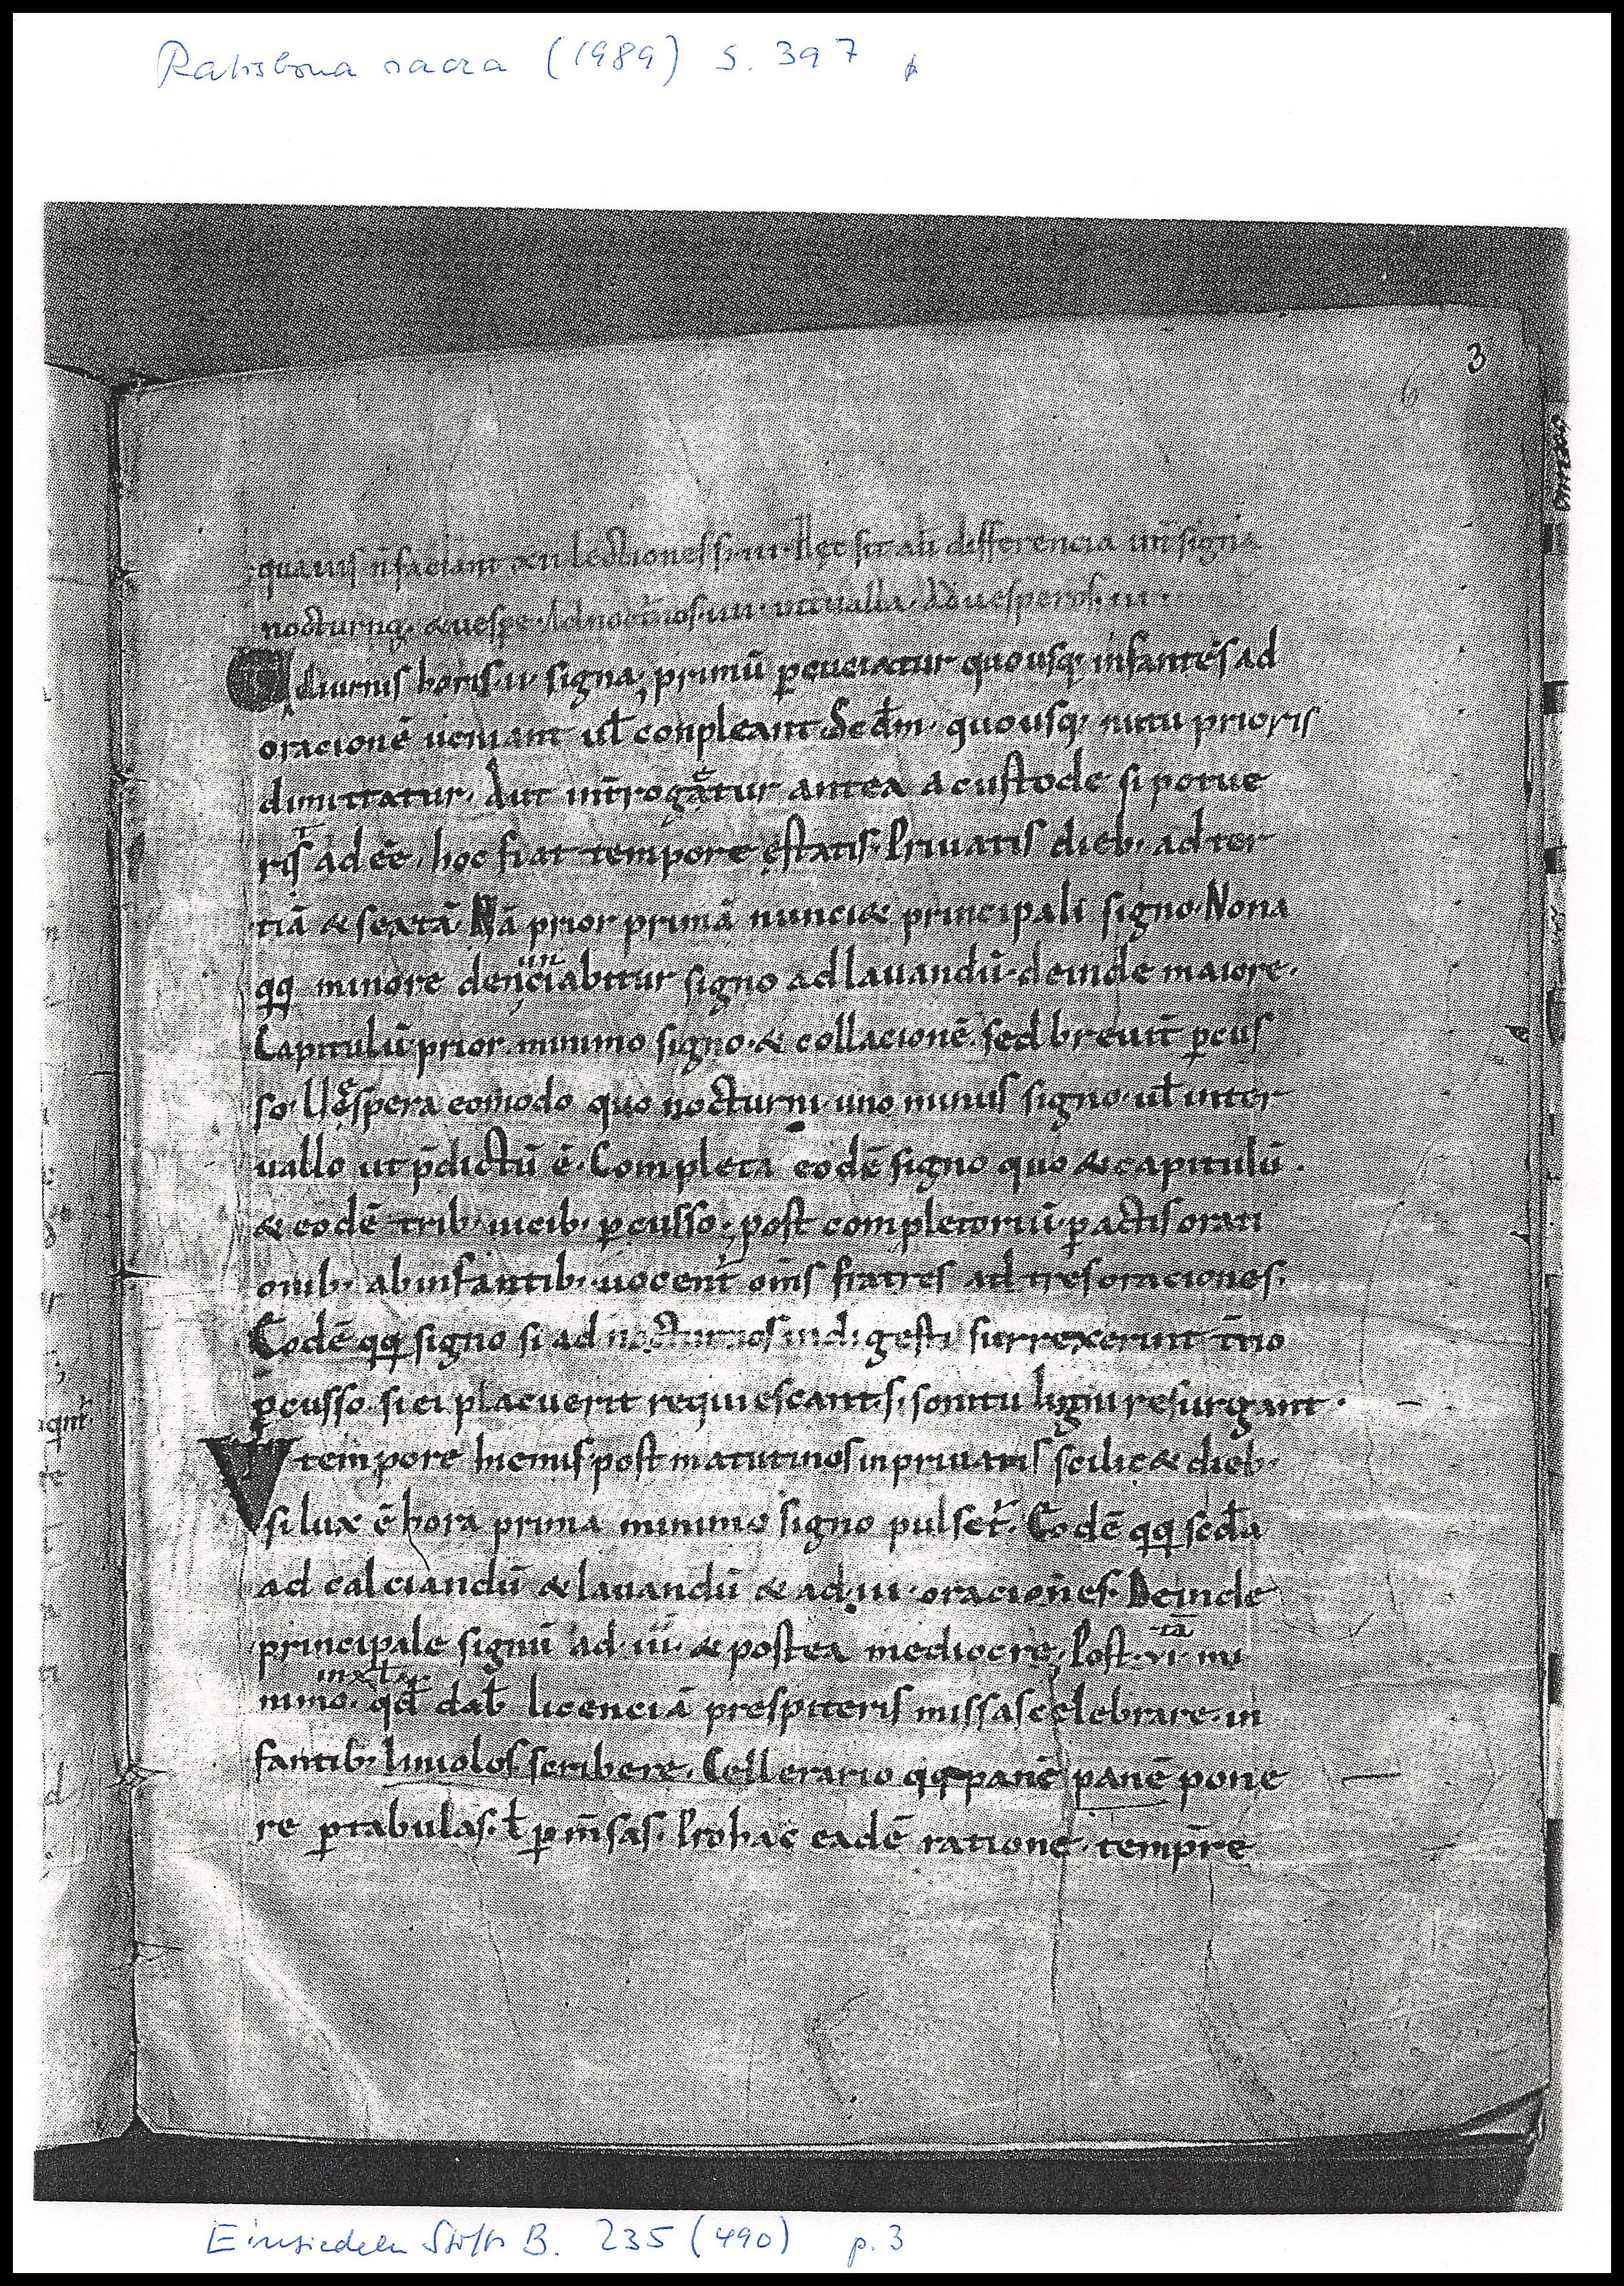 Ratisbona sacra (1989) S. 397
3
6
quãuis n̄ faciant xii lectiones s; iii· Hęc sit ab differencia iiii signa
nocturnę· & uespe· Ad noct̄nos· iiii· int̄ualla· Ad uesperos· iii·
diurnis horis· ii· signa, primū ꝑcuciatur quousq; infantes ad
oracionē ueniant uł conpleant Scd̄m· quousq; nutu prioris
dimittatur· Aut int̄rogetur antea a custode si potue
rit adeē· hoc fiat tempore ęstatis· Priuatis dieb; ad ter
tiā & sextā· Nā prior primā nunci& principali signo· Nona
qq; minore denunciabitur signo ad lauandū· deinde maiore·
Capitulū prior minimo signo· & collacionē sed breuit̄ ꝑcus
so· Uespera eomodo quo nocturni· uno minus signo· uł inter
uallo ut p̄dictū ē· Completa eodē signo quo & capitulū·
& eodē trib; uicib; ꝑcusso; post completoriū· ꝑactis orati
onib; ab infantib; uocent̄ om̄s fratres ad tres oraciones·
Eodē qq; signo si ad nocturnos ind·gesti surrexerint t̄no
ꝑcusso· si ei placuerit requiescant· s; sonitu ligni resurgant·
tempore hiemis· post matutinos in priuatis scilic& dieb;
si lux ē hora prima minimo signo pulset̄· Eodē qq; scd̄a
ad calciandū & lauandū & ad· iii· oraciones· Deinde
principale signū ad· iii· & postea mediocre; Post· vi·tā mi
nimo· qd̄ dab̄ licenciā prespiteris missas celebrare· in
fantib; liniolos scribere· Cellerario qq; panē panē pone
re ꝑ tabulas· ł ꝑ m̄sas· Pro hac eadē ratione· temp̄re
Einsiedeln StiftsB. 235 (490) p. 3